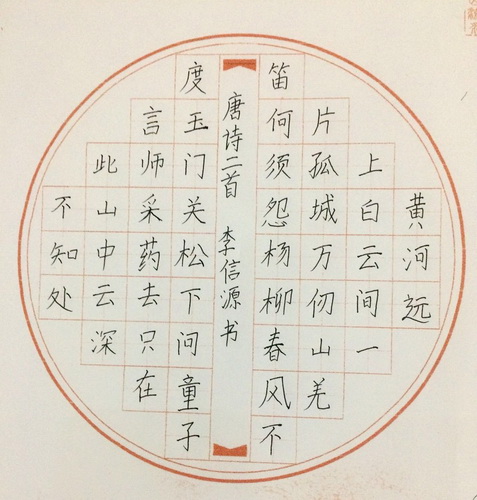 黄河远
上白云间一
片孤城万仞山羌
笛何须怨杨柳春风不
唐诗二首 李信源书
度玉门关松下问童子
言师采药去只在
此山中云深
不知处